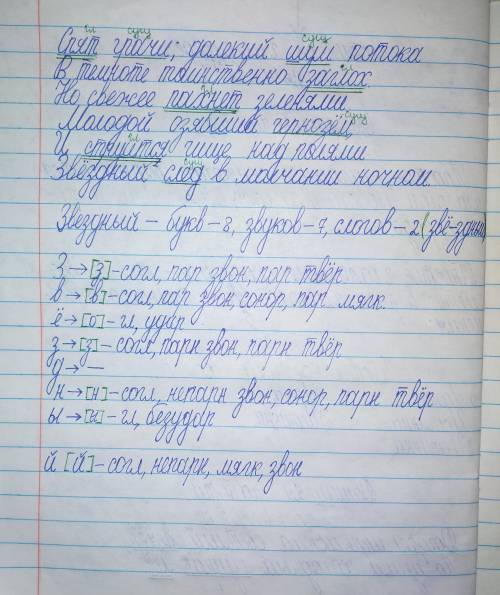 гл сущ сущ
Спят грачи; далекий шум потока
В темноте таинственно заглох.
Но свежее пахнет зеленями
гл сущ
Молодой озябший чернозём,
гл
И струится чище над полями
сущ
Звёздный след в молчании ночном.
Звездный – букв – 8, звуков – 7, слогов – 2 (звё-здный)
З → [з] – согл, пар звон, пар твёр
в → [в'] – согл, пар звон, сонор, пар мягк.
ё → [о] – гл, удар
з → [з] – согл, парн звон, парн твёр
д → —
н → [н] – согл, непарн звон, сонор, парн твёр
ы → [ы] – гл, безудар
й [й] – согл, непарн, мягк, звон